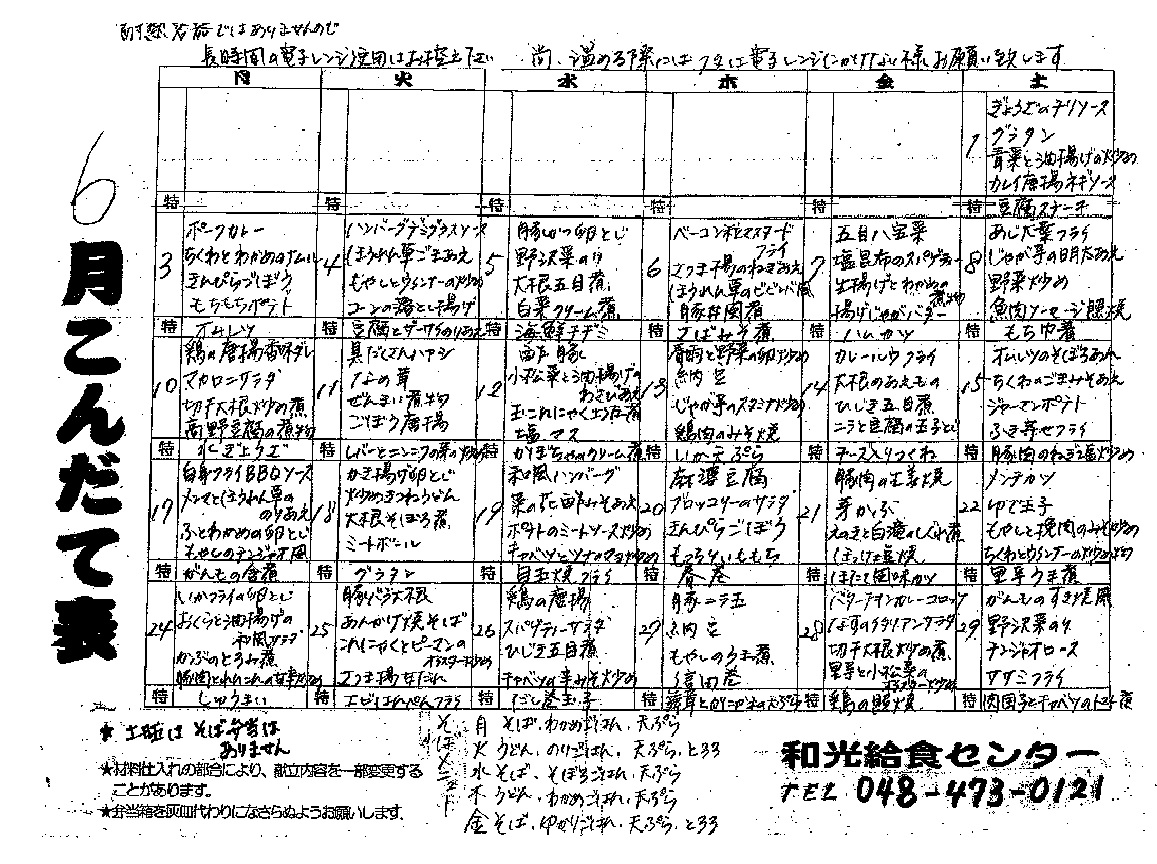 耐熱容器ではありませんので
長時間の電子レンジ使用はお控え下さい 尚、温める際にはフタは電子レンジにかけない様お願い致します
6月こんだて表
月 火 水 木 金 土
1
ぎょうざのチリソース
グラタン
青菜と油揚げの炒め
カレイ唐揚ネギソース
特 豆腐ステーキ
3
ポークカレー
ちくわとわかめのナムル
きんぴらごぼう
もちもちポテト
特 オムレツ
4
ハンバーグデミグラスソース
ほうれん草ごまあえ
もやしとウィンナーの炒め
コーンの落とし揚げ
特
5
豚かつ卵とじ
野沢菜
大根五目煮
白菜クリーム煮
特 海鮮チヂミ
6
ベーコン粒マスタード
フライ
さつま揚のねぎあえ
ほうれん草のビビンバ風
豚丼風煮
特 さばみそ煮
7
五目八宝菜
塩昆布のスパゲティー
生揚げとわかめの
煮物
揚げじゃがバター
特 ハムカツ
8
あじ大葉フライ
じゃが芋の明太あえ
野菜炒め
魚肉ソーセージ照焼
特 もち巾着
10
鶏の唐揚香味ダレ
マカロニサラダ
切干大根炒め煮
高野豆腐の煮物
特 水ぎょうざ
11
具だくさんハヤシ
ぜんまい煮物
ごぼう唐揚
特 レバーとニンニクの芽の炒め
12
小松菜と油揚げの
わさびあえ
玉こんにゃく
塩マス
特 かぼちゃのクリーム煮
13
春雨と野菜の卵炒め
納豆
じゃが芋のスタミナ炒め
鶏肉のみそ焼
特 いか天ぷら
14
カレールウフライ
大根のあえもの
ひじき五目煮
ニラと豆腐の玉子とじ
特 チーズ入りつくね
15
オムレツのそぼろあん
ちくわのごまみそあえ
ジャーマンポテト
ふき寄せフライ
特 豚肉のねぎ塩炒め
17
白身フライBBQソース
メンマとほうれん草の
のりあえ
ふとわかめの卵とじ
もやしのチンジャオ風
特 がんもの含煮
18
かき揚げ卵とじ
炒めきつねうどん
大根そぼろ煮
ミートボール
特 グラタン
19
和風ハンバーグ
ポテトのミートソース炒め
キャベツとツナの
特 目玉焼フライ
20
麻婆豆腐
ブロッコリーのサラダ
きんぴらごぼう
特 春巻
21
豚肉の生姜焼
芽かぶ
えのきと白滝のしぐれ煮
ほっけ塩焼
特 ほたて風味カツ
22
メンチカツ
ゆで玉子
もやしと挽肉のみそ炒め
ちくわとウィンナーの炒め物
特 里芋うま煮
24
いかフライの卵とじ
おくらと油揚げの
和風サラダ
かぶのとろみ煮
特 しゅうまい
25
豚バラ大根
あんかけ焼そば
こんにゃくとピーマンの
オイスター炒め
さつま揚
特 エビはんぺんフライ
26
鶏の唐揚
スパゲティーサラダ
ひじき五目煮
キャベツの辛みそ炒め
特 だし巻玉子
27
豚ニラ玉
納豆
もやしのうま煮
信田巻
特
28
バターチキンカレーコロッケ
はすのイタリアンサラダ
切干大根炒め煮
里芋と小松菜の
特 鶏の照焼
29
がんものすき焼風
野沢菜
チンジャオロース
ササミフライ
特 肉団子とキャベツのトマト煮
★土曜はそば弁当は
ありません
★材料仕入れの都合により、献立内容を一部変更する
ことがあります。
★弁当箱を灰皿代わりになさらぬようお願いします。
そばメニュー
月 そば、わかめごはん、天ぷら
火 うどん、のりごはん、天ぷら、とろろ
水 そば、そぼろごはん、天ぷら
木 うどん、わかめごはん、天ぷら
金 そば、ゆかりごはん、天ぷら、とろろ
和光給食センター
TEL 048-473-0121